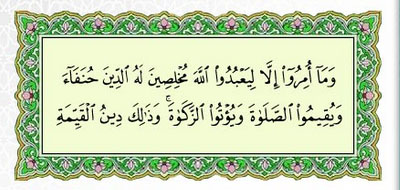 وَمَآ أُمِرُوٓا۟ إِلَّا لِيَعْبُدُوا۟ ٱللَّهَ مُخْلِصِينَ لَهُ ٱلدِّينَ حُنَفَآءَ
وَيُقِيمُوا۟ ٱلصَّلَوٰةَ وَيُؤْتُوا۟ ٱلزَّكَوٰةَ ۚ وَذَٰلِكَ دِينُ ٱلْقَيِّمَةِ